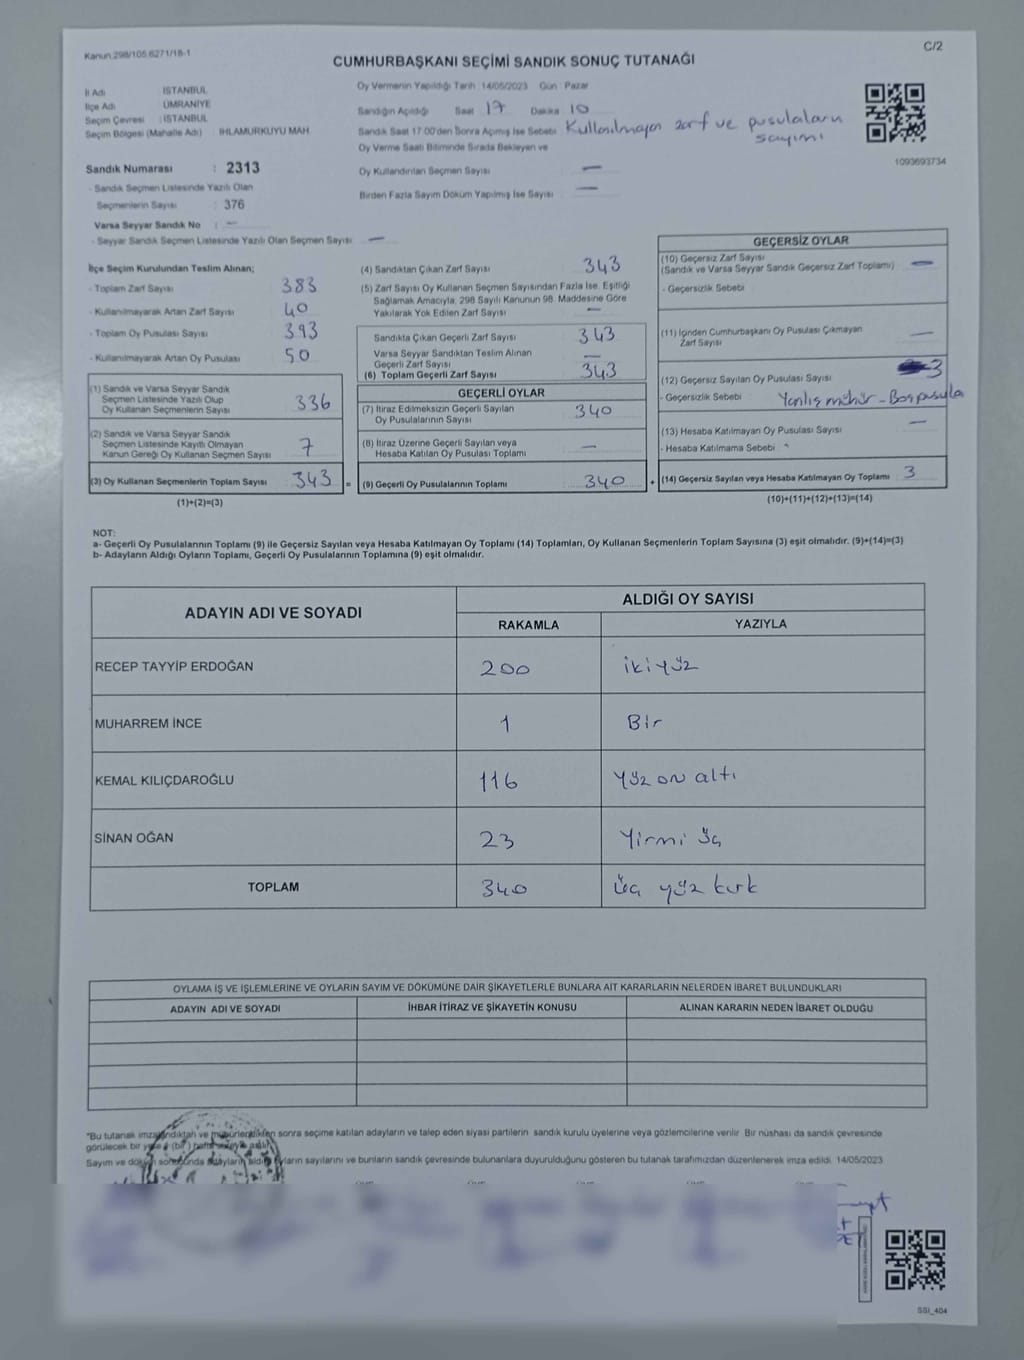 Kanun:298/105.6271/18-1
C/2
CUMHURBAŞKANI SEÇİMİ SANDIK SONUÇ TUTANAĞI
İl Adı : İSTANBUL
İlçe Adı : ÜMRANİYE
Seçim Çevresi : İSTANBUL
Seçim Bölgesi (Mahalle Adı) : IHLAMURKUYU MAH
Oy Vermenin Yapıldığı Tarih : 14/05/2023 Gün : Pazar
Sandığın Açıldığı Saat 17 Dakika 10
Sandık Saat 17.00'den Sonra Açmış İse Sebebi Kullanılmayan zarf ve pusulaların sayımı
Oy Verme Saati Bitiminde Sırada Bekleyen ve
Oy Kullandırılan Seçmen Sayısı —
Birden Fazla Sayım Döküm Yapılmış İse Sayısı —
1093693734
Sandık Numarası : 2313
- Sandık Seçmen Listesinde Yazılı Olan
Seçmenlerin Sayısı : 376
Varsa Seyyar Sandık No : —
- Seyyar Sandık Seçmen Listesinde Yazılı Olan Seçmen Sayısı: —
İlçe Seçim Kurulundan Teslim Alınan;
- Toplam Zarf Sayısı 383
- Kullanılmayarak Artan Zarf Sayısı 40
- Toplam Oy Pusulası Sayısı 393
- Kullanılmayarak Artan Oy Pusulası 50
(1) Sandık ve Varsa Seyyar Sandık
Seçmen Listesinde Yazılı Olup
Oy Kullanan Seçmenlerin Sayısı 336
(2) Sandık ve Varsa Seyyar Sandık
Seçmen Listesinde Kayıtlı Olmayan
Kanun Gereği Oy Kullanan Seçmen Sayısı 7
(3) Oy Kullanan Seçmenlerin Toplam Sayısı 343 =
(1)+(2)=(3)
(4) Sandıktan Çıkan Zarf Sayısı 343
(5) Zarf Sayısı Oy Kullanan Seçmen Sayısından Fazla İse, Eşitliği
Sağlamak Amacıyla, 298 Sayılı Kanunun 98. Maddesine Göre
Yakılarak Yok Edilen Zarf Sayısı —
Sandıkta Çıkan Geçerli Zarf Sayısı 343
Varsa Seyyar Sandıktan Teslim Alınan
Geçerli Zarf Sayısı —
(6) Toplam Geçerli Zarf Sayısı 343
GEÇERLİ OYLAR
(7) İtiraz Edilmeksizin Geçerli Sayılan
Oy Pusulalarının Sayısı 340
(8) İtiraz Üzerine Geçerli Sayılan veya
Hesaba Katılan Oy Pusulası Toplamı —
(9) Geçerli Oy Pusulalarının Toplamı 340 +
GEÇERSİZ OYLAR
(10) Geçersiz Zarf Sayısı
(Sandık ve Varsa Seyyar Sandık Geçersiz Zarf Toplamı) —
- Geçersizlik Sebebi
(11) İçinden Cumhurbaşkanı Oy Pusulası Çıkmayan
Zarf Sayısı —
(12) Geçersiz Sayılan Oy Pusulası Sayısı 3
- Geçersizlik Sebebi Yanlış mühür - Boş pusula
(13) Hesaba Katılmayan Oy Pusulası Sayısı —
- Hesaba Katılmama Sebebi
(14) Geçersiz Sayılan veya Hesaba Katılmayan Oy Toplamı 3
(10)+(11)+(12)+(13)=(14)
NOT:
a- Geçerli Oy Pusulalarının Toplamı (9) ile Geçersiz Sayılan veya Hesaba Katılmayan Oy Toplamı (14) Toplamları, Oy Kullanan Seçmenlerin Toplam Sayısına (3) eşit olmalıdır. (9)+(14)=(3)
b- Adayların Aldığı Oyların Toplamı, Geçerli Oy Pusulalarının Toplamına (9) eşit olmalıdır.
ADAYIN ADI VE SOYADI
ALDIĞI OY SAYISI
RAKAMLA YAZIYLA
RECEP TAYYİP ERDOĞAN 200 iki yüz
MUHARREM İNCE 1 Bir
KEMAL KILIÇDAROĞLU 116 Yüz on altı
SİNAN OĞAN 23 Yirmi üç
TOPLAM 340 üç yüz kırk
OYLAMA İŞ VE İŞLEMLERİNE VE OYLARIN SAYIM VE DÖKÜMÜNE DAİR ŞİKAYETLERLE BUNLARA AİT KARARLARIN NELERDEN İBARET BULUNDUKLARI
ADAYIN ADI VE SOYADI İHBAR İTİRAZ VE ŞİKAYETİN KONUSU ALINAN KARARIN NEDEN İBARET OLDUĞU
"Bu tutanak imzalandıktan ve mühürlendikten sonra seçime katılan adayların ve talep eden siyasi partilerin sandık kurulu üyelerine veya gözlemcilerine verilir. Bir nüshası da sandık çevresinde
görülecek bir yere (bir) hafta süreyle asılır.
Sayım ve döküm sonucunda adayların aldığı oyların sayılarını ve bunların sandık çevresinde bulunanlara duyurulduğunu gösteren bu tutanak tarafımızdan düzenlenerek imza edildi. 14/05/2023
SSI_404